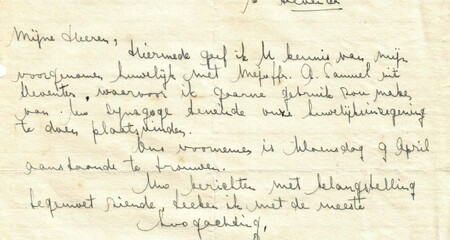 Deventer
Mijne Heeren,
Hiermede geef ik U kennis van mijn
voorgenomen huwelijk met Mejoffr. A. Samuel uit
Deventer, waarvoor ik gaarne gebruik zou maken
van Uw Synagoge teneinde onze huwelijksinzegening
te doen plaatsvinden.
Ons voornemen is Woensdag 9 April
aanstaande te trouwen.
Uwe berichten met belangstelling
tegemoet ziende, teeken ik met de meeste
Hoogachting,